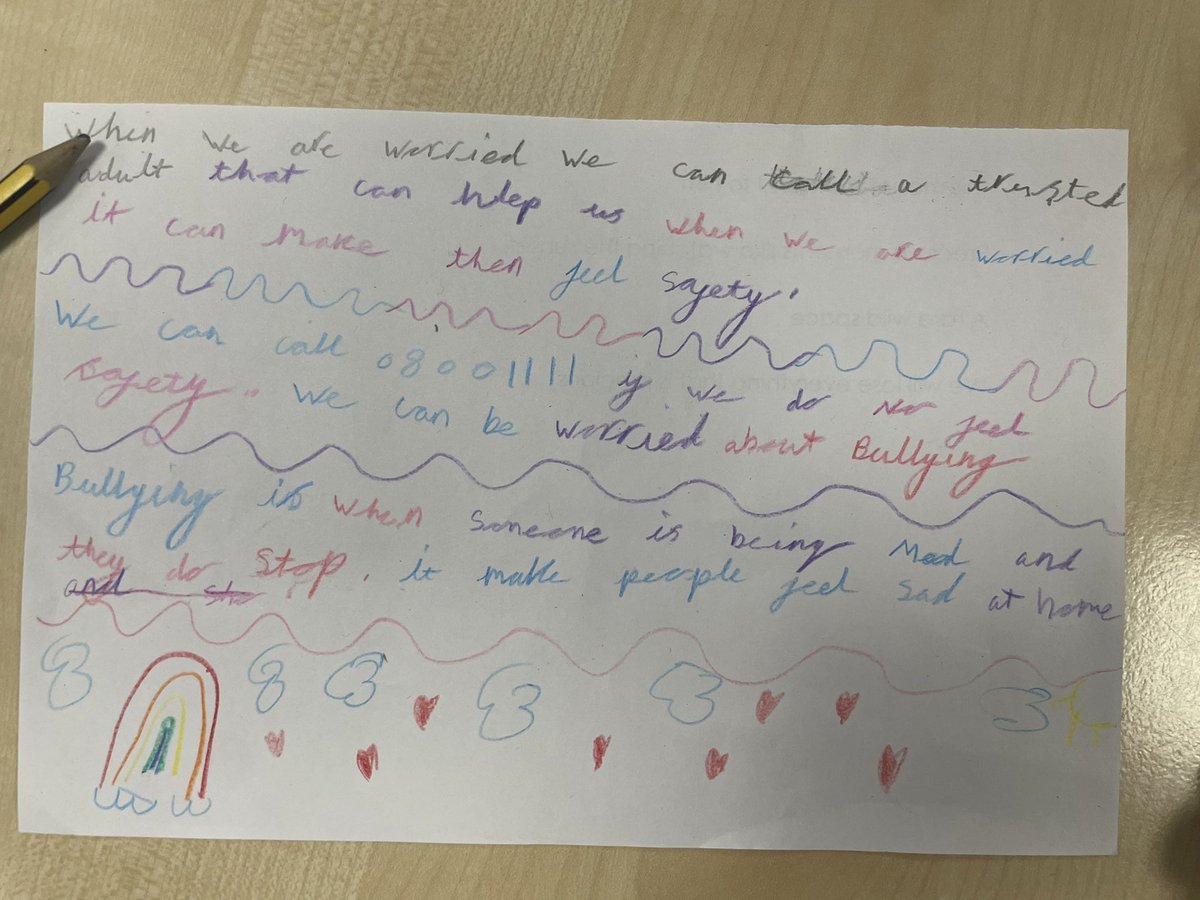 When we are worried we can call a trusted
adult that can hlep us when we are worried
it can make then feel Safety.
We can call 08001111 if we do no feel
Safety. We can be worried about Bullying
Bullying is when Someone is being Mad and
they do Stop. it make people feel Sad at home
and